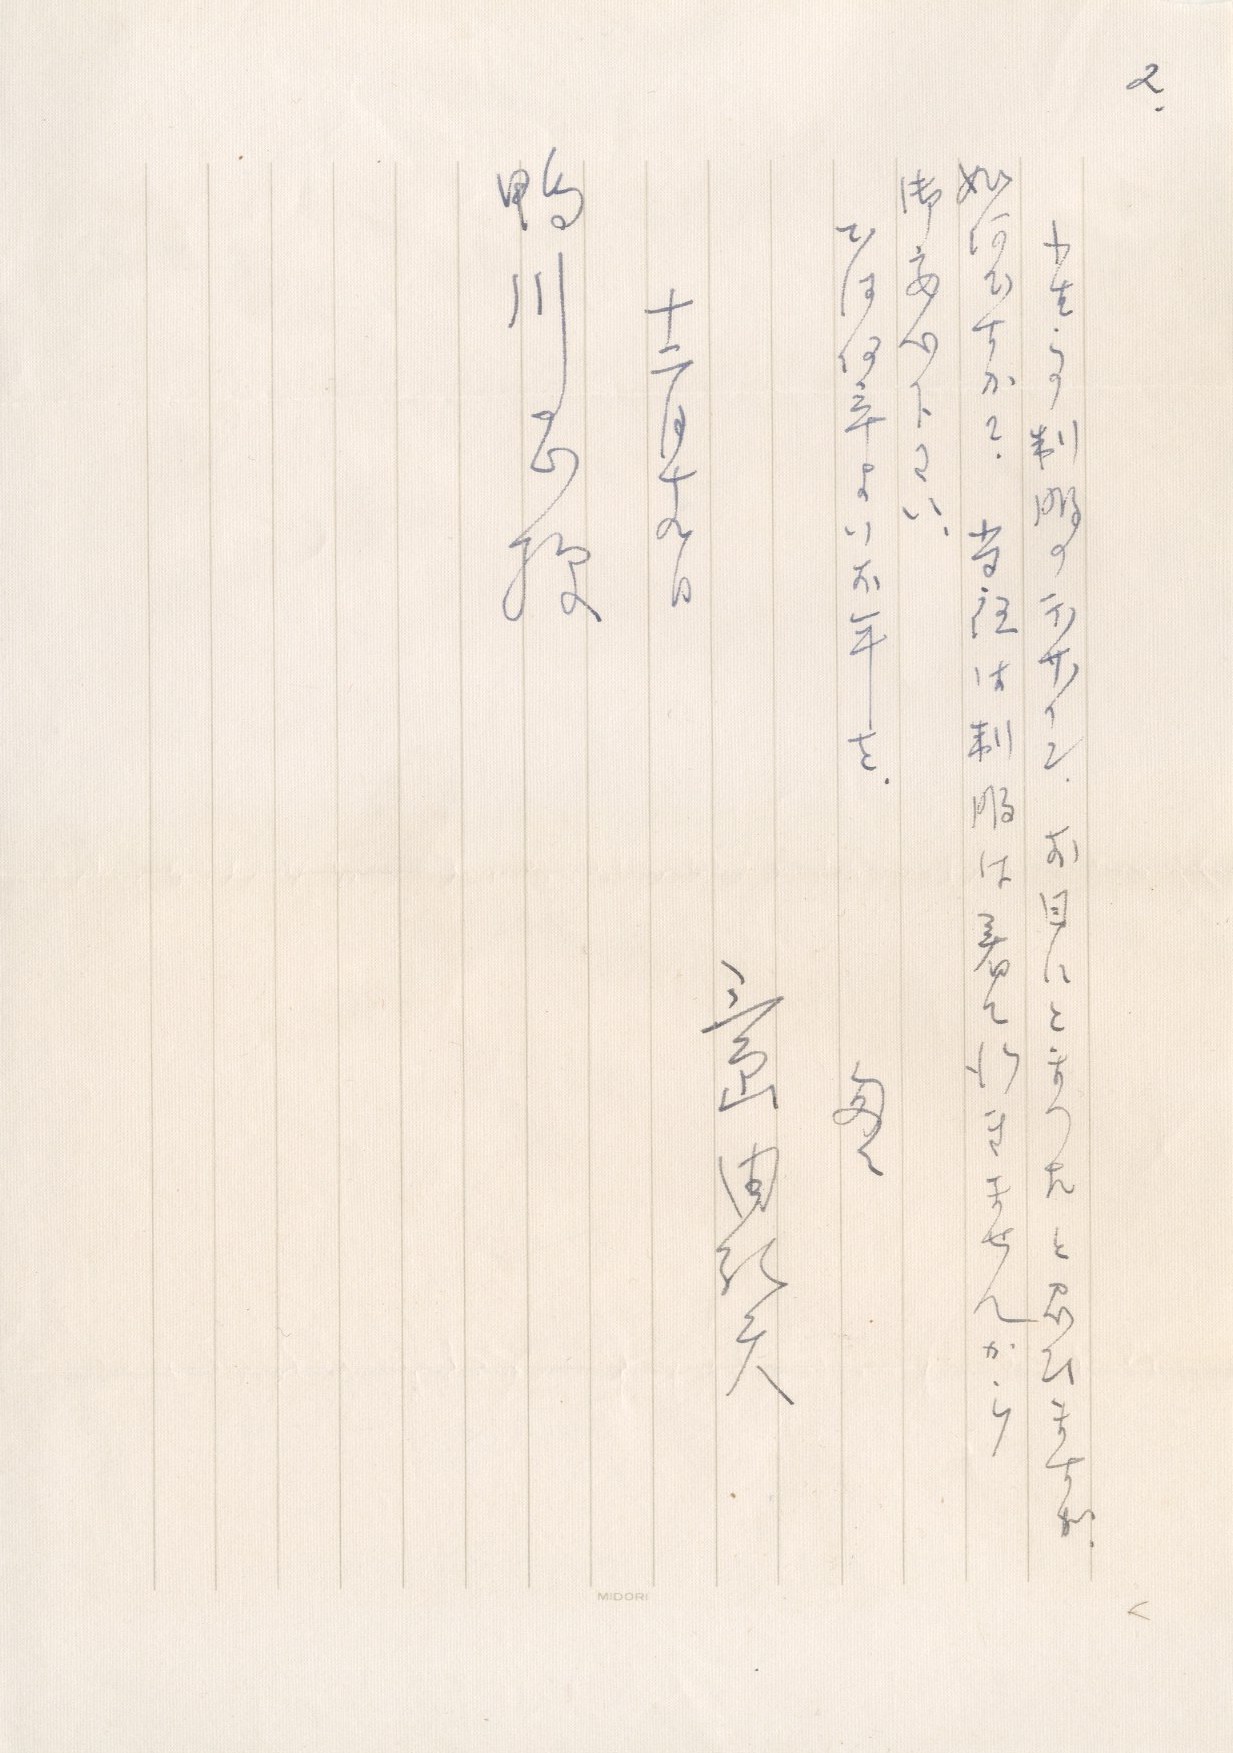 2.
小生らの制服のデザイン、お目にとまつたと思ひますが、
如何ですかな、当夜は制服は着て行きませんから
御安心下さい、
では何卒よいお年を、
匆々
三島由紀夫
十二月十九日
鴨川正様
MIDORI